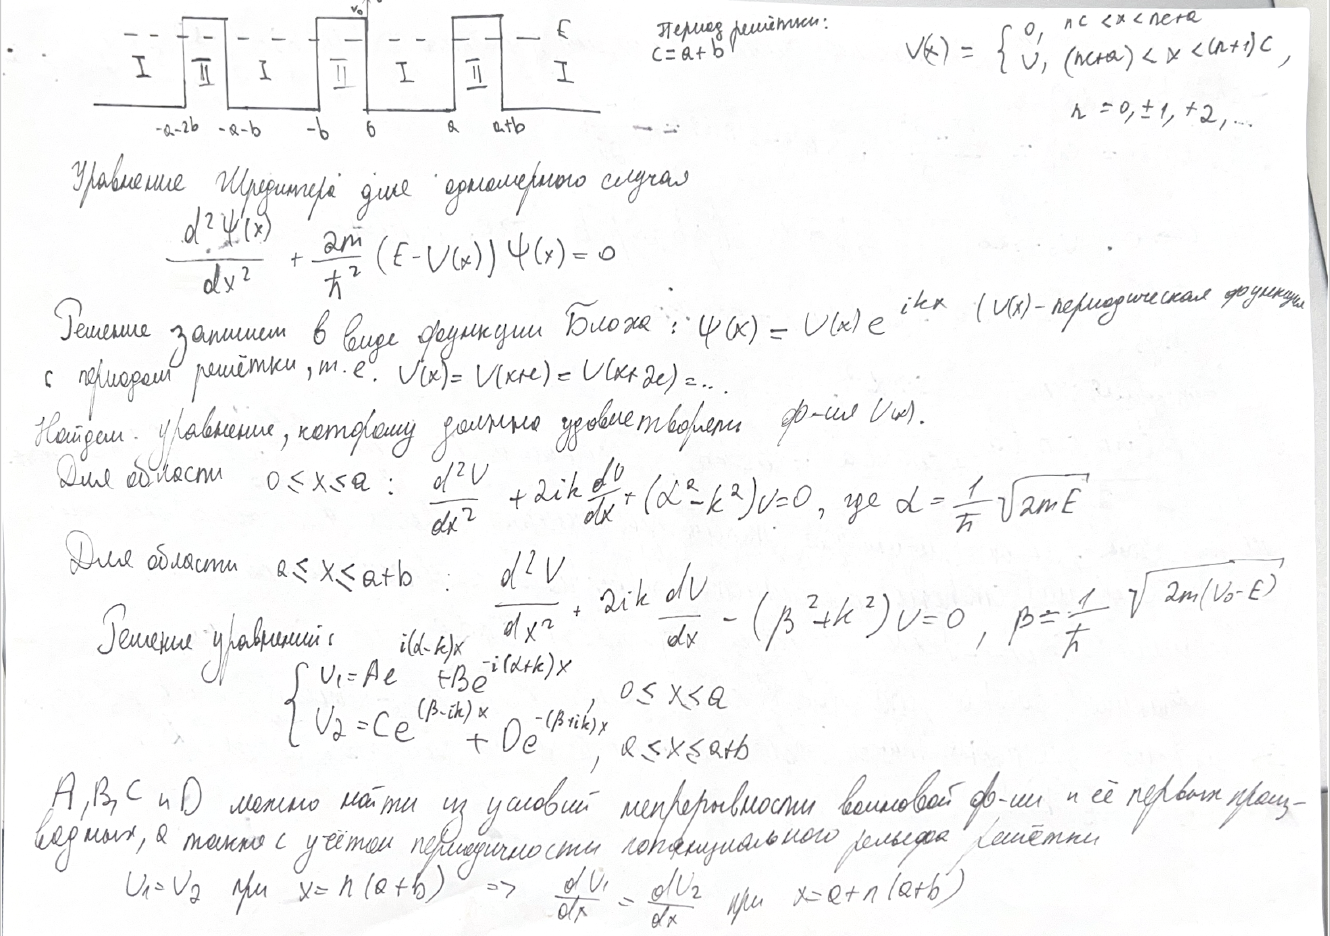 V₀
E
I II I II I II I
-a-2b -a-b -b 0 a a+b
Период решётки:
c=a+b
V(x) = { 0, nc < x < nc+a
V, (nc+a) < x < (n+1)c,
n = 0, ±1, +2, ...
Уравнение Шредингера для одномерного случая
d²Ψ(x)/dx² + 2m/ħ² (E - V(x)) Ψ(x) = 0
Решение запишем в виде функции Блоха: Ψ(x) = U(x) e^{ikx} (U(x) - периодическая функция
с периодом решётки, т.е. U(x) = U(x+c) = U(x+2c) = ...
Найдем уравнение, которому должна удовлетворять ф-ия U(x).
Для области 0 ≤ x ≤ a : d²U/dx² + 2ik dU/dx + (α² - k²)U = 0, где α = 1/ħ √(2mE)
Для области a ≤ x ≤ a+b : d²U/dx² + 2ik dU/dx - (β² + k²)U = 0, β = 1/ħ √(2m(V₀-E))
Решение уравнений:
{ U₁ = Ae^{i(α-k)x} + Be^{-i(α+k)x}, 0 ≤ x ≤ a
U₂ = Ce^{(β-ik)x} + De^{-(β+ik)x}, a ≤ x ≤ a+b
A, B, C и D можно найти из условий непрерывности волновой ф-ии и её первых произ-
водных, а также с учётом периодичности потенциального рельефа решётки
U₁ = U₂ при x = n(a+b) => dU₁/dx = dU₂/dx при x = a+n(a+b)